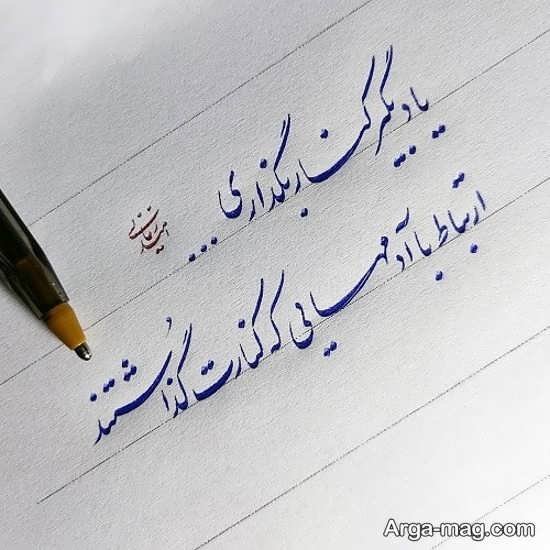 یاد بگیر کنار بگذاری...
ارتباط با آدمهایی که کنارت گذاشتند
Arga-mag.com